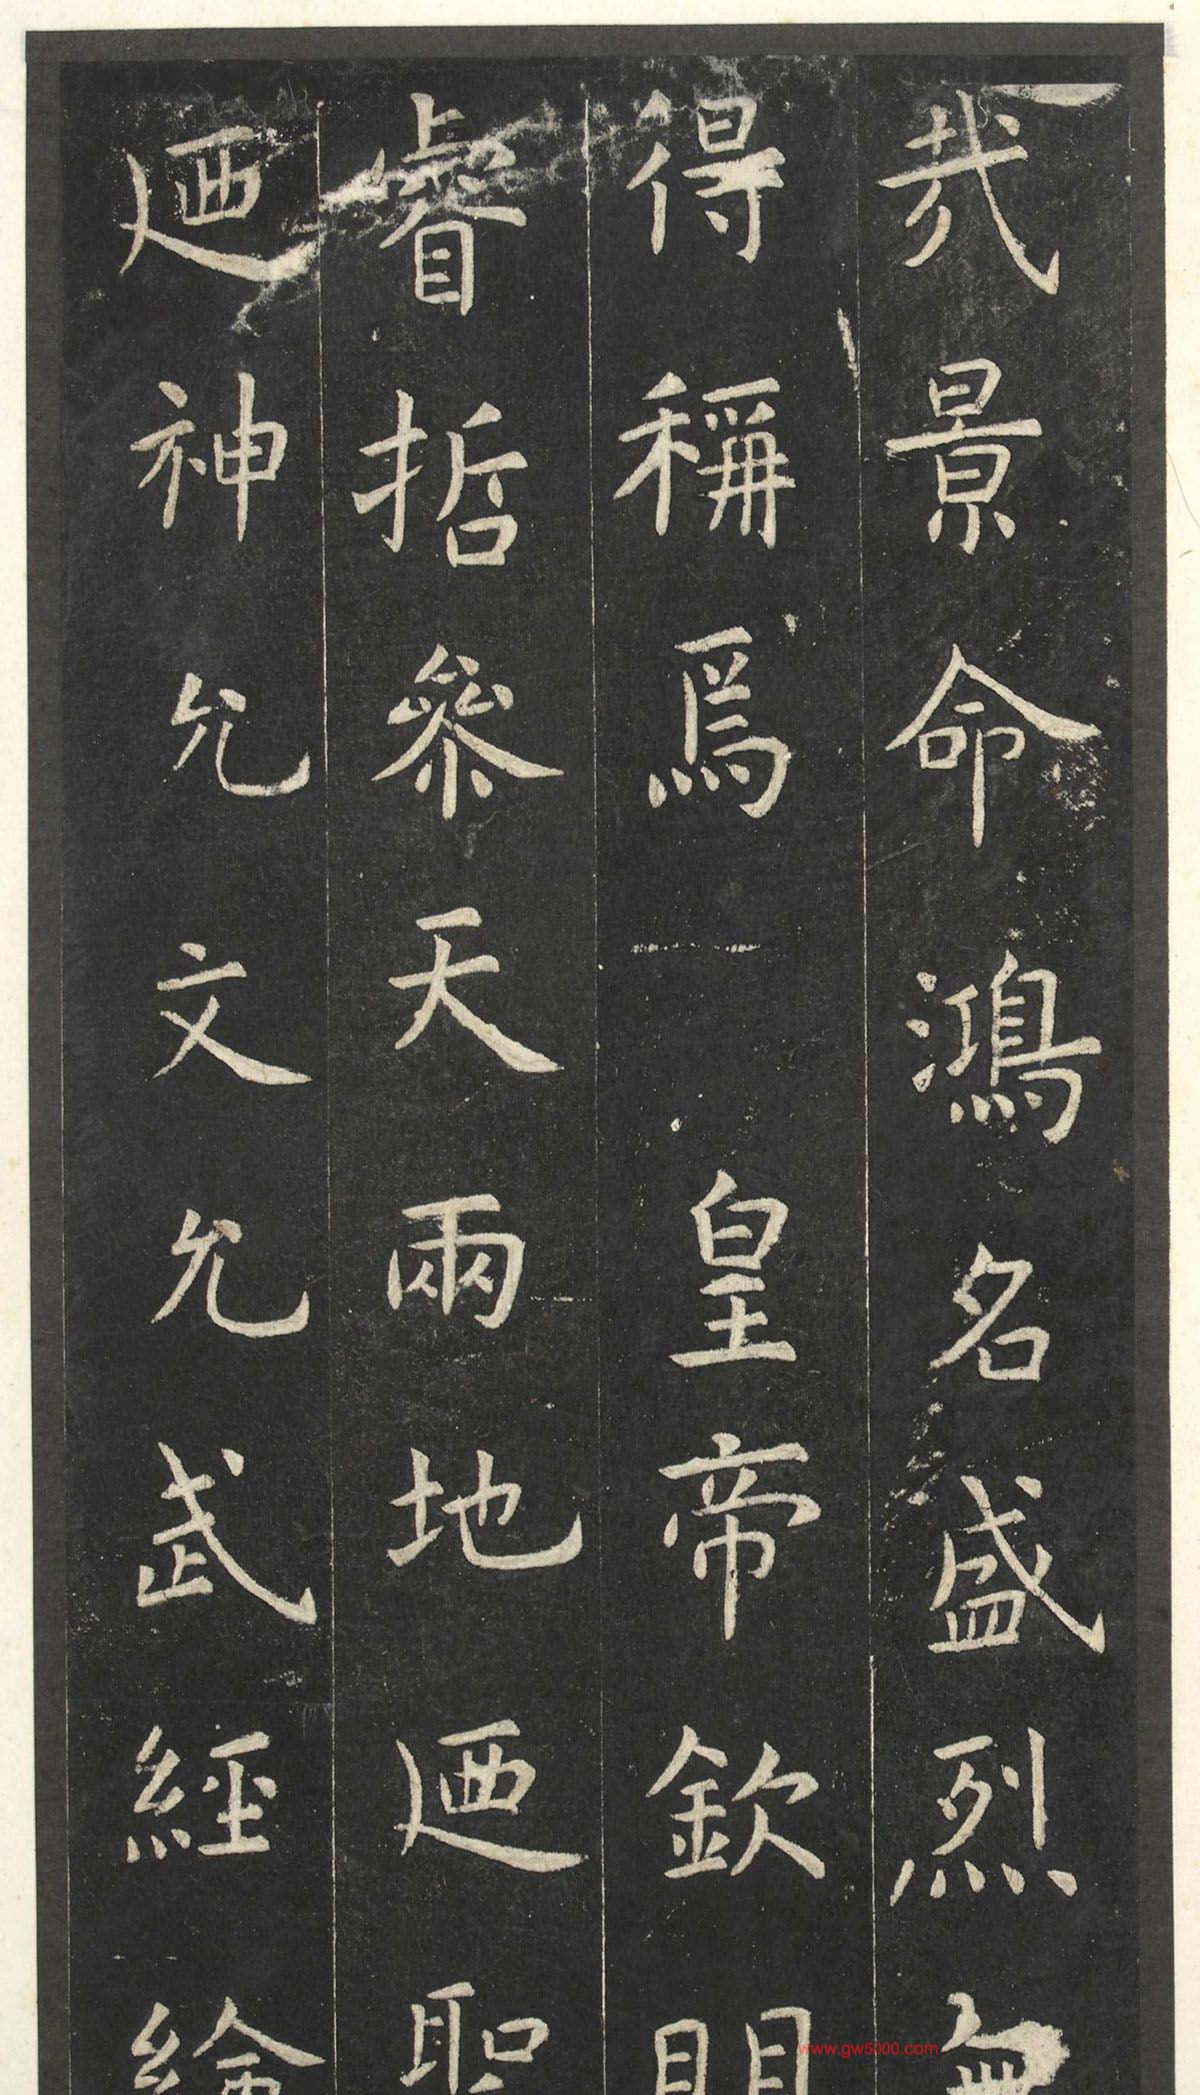 哉景命鴻名盛烈無
得稱爲 皇帝欽明
睿哲叅天兩地廼聖
廼神允文允武經綸
www.gw5000.com